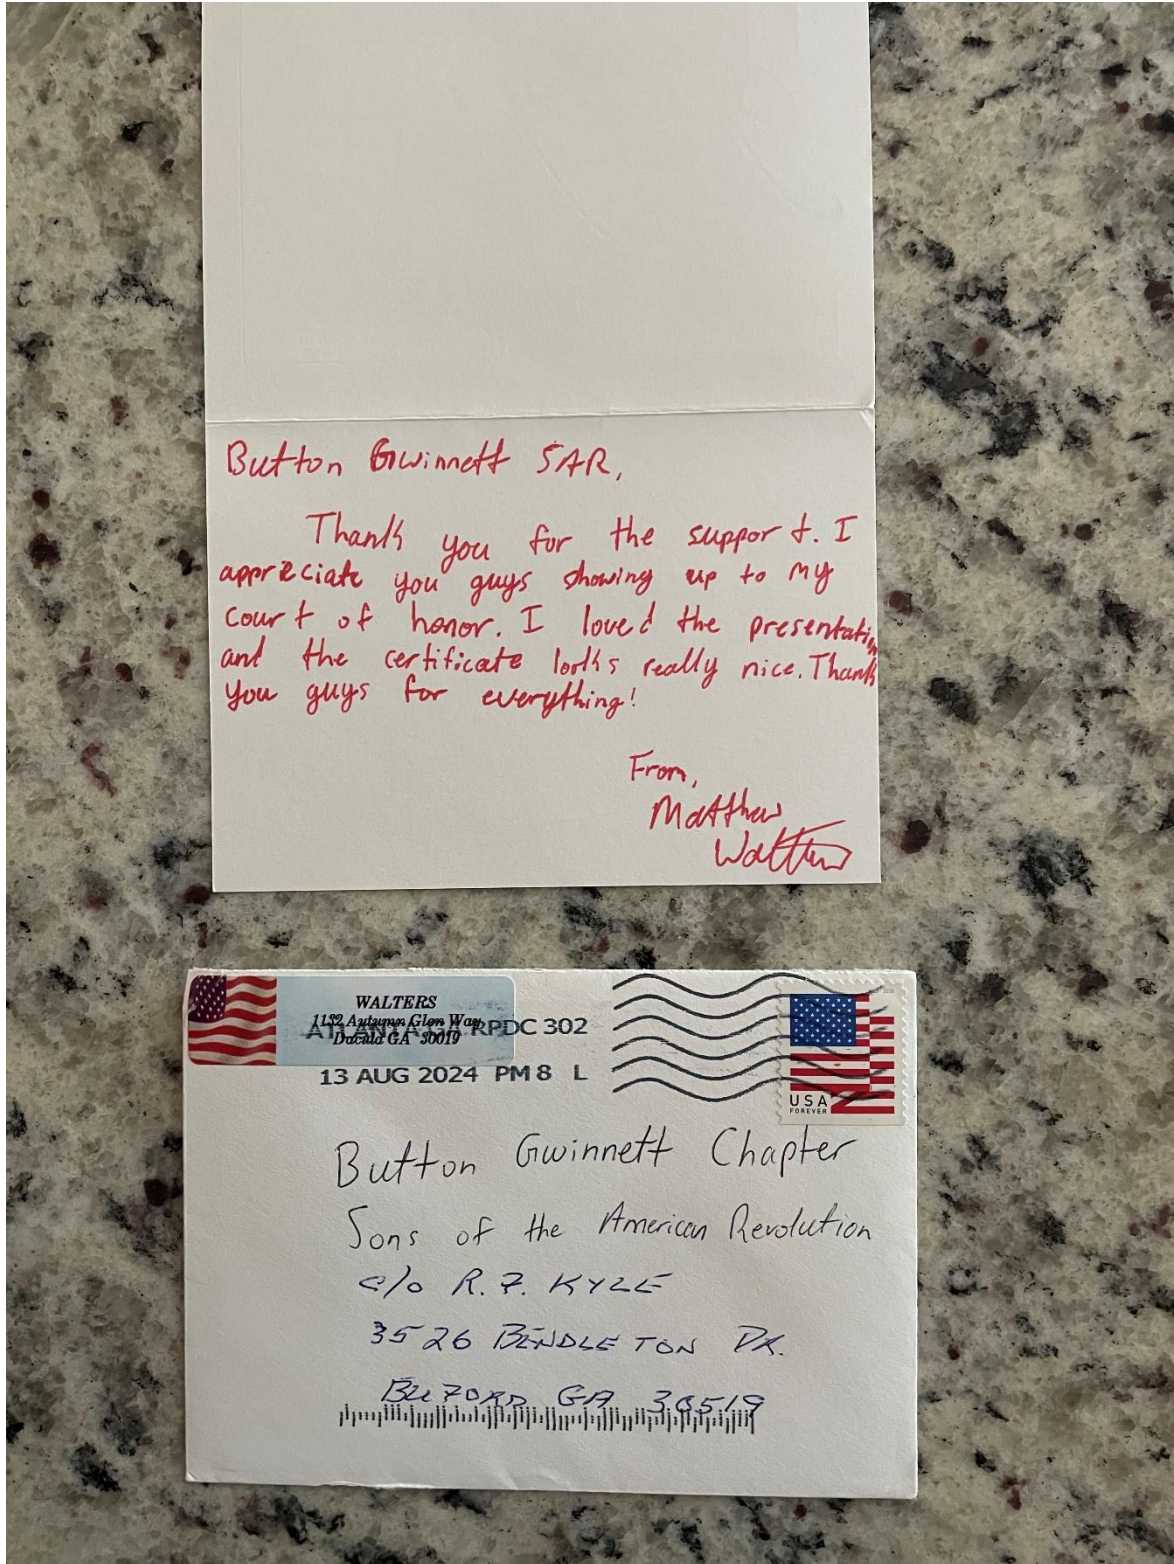 Button Gwinnett SAR,
Thank you for the support. I
appreciate you guys showing up to my
court of honor. I loved the presentation
and the certificate looks really nice. Thank
you guys for everything!
From,
Matthew
Walters
WALTERS
1132 Autumn Glen Way
Dacula GA 30019
ATLANTA GA RPDC 302
13 AUG 2024 PM 8 L
USA
FOREVER
Button Gwinnett Chapter
Sons of the American Revolution
c/o R.F. KYLE
3526 BENDLETON DR.
BUFORD GA 30519